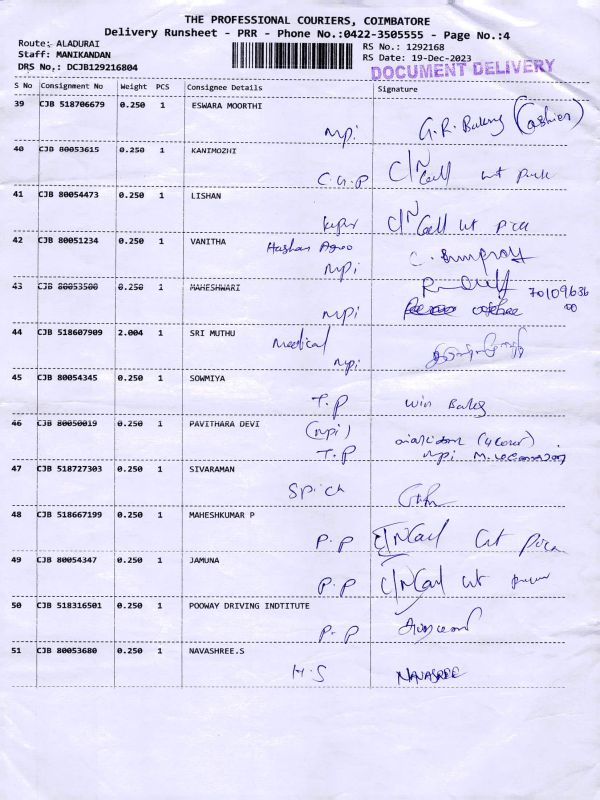 THE PROFESSIONAL COURIERS, COIMBATORE
Delivery Runsheet - PRR - Phone No.:0422-3505555 - Page No.:4
Route: ALADURAI
RS No.: 1292168
Staff: MANIKANDAN
RS Date: 19-Dec-2023
DRS No.: DCJB129216804
DOCUMENT DELIVERY
S No Consignment No Weight PCS Consignee Details Signature
39 CJB 518706679 0.250 1 ESWARA MOORTHI
mpi G.R. Bakery (Cashier)
40 CJB 80053615 0.250 1 KANIMOZHI
C.G.P C/N Call
41 CJB 80054473 0.250 1 LISHAN
C/N Call
42 CJB 80051234 0.250 1 VANITHA
mpi
43 CJB 80053500 0.250 1 MAHESHWARI
mpi
44 CJB 518607909 2.004 1 SRI MUTHU Medical
mpi
45 CJB 80054345 0.250 1 SOWMIYA
T.P win Bakery
46 CJB 80050019 0.250 1 PAVITHARA DEVI (mpi)
T.P mpi
47 CJB 518727303 0.250 1 SIVARAMAN
48 CJB 518667199 0.250 1 MAHESHKUMAR P
P.P C/N Call
49 CJB 80054347 0.250 1 JAMUNA
P.P C/N Call
50 CJB 518316501 0.250 1 POOWAY DRIVING INDTITUTE
P.P
51 CJB 80053680 0.250 1 NAVASHREE.S
H.S NAVASREE